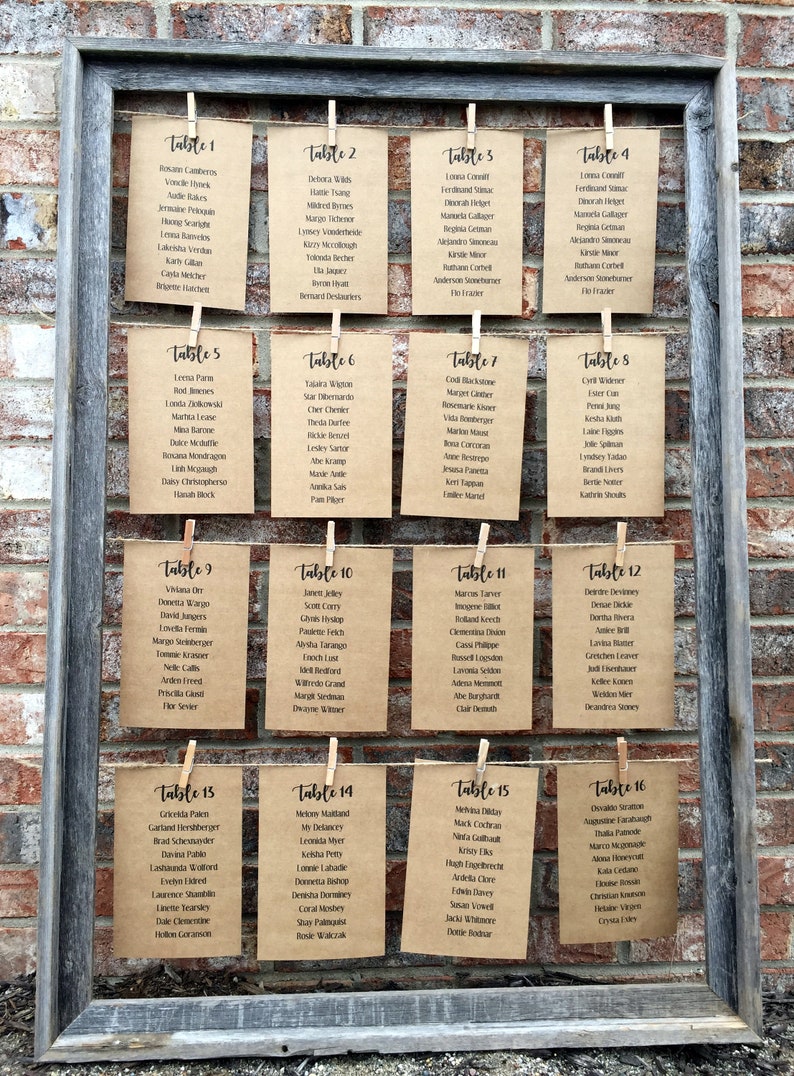 Table 1
Rosann Camberos
Voncile Hynek
Audie Rakes
Jermaine Peloquin
Huong Searight
Lenna Banvelos
Lakeisha Verdun
Karly Gillan
Cayla Melcher
Brigette Hatchett
Table 2
Debora Wilds
Hattie Tsang
Mildred Byrnes
Margo Tichenor
Lynsey Vonderheide
Kizzy Mccollough
Yolonda Becher
Ula Jaquez
Byron Hyatt
Bernard Deslauriers
Table 3
Lonna Conniff
Ferdinand Stimac
Dinorah Helget
Manuela Gallager
Reginia Getman
Alejandro Simoneau
Kirstie Minor
Ruthann Corbell
Anderson Stoneburner
Flo Frazier
Table 4
Lonna Conniff
Ferdinand Stimac
Dinorah Helget
Manuela Gallager
Reginia Getman
Alejandro Simoneau
Kirstie Minor
Ruthann Corbell
Anderson Stoneburner
Flo Frazier
Table 5
Leena Parm
Rod Jimenes
Londa Ziolkowski
Marhta Lease
Mina Barone
Dulce Mcduffie
Roxana Mondragon
Linh Mcgaugh
Daisy Christopherso
Hanah Block
Table 6
Yajaira Wigton
Star Dibernardo
Cher Chenier
Theda Durfee
Rickie Benzel
Lesley Sartor
Abe Kramp
Maxie Antle
Annika Sais
Pam Pilger
Table 7
Codi Blackstone
Marget Ginther
Rosemarie Kisner
Vida Bomberger
Marlon Maust
Ilona Corcoran
Anne Restrepo
Jesusa Panetta
Keri Tappan
Emilee Martel
Table 8
Cyril Widener
Ester Cun
Penni Jung
Kesha Kluth
Laine Figgins
Jolie Spilman
Lyndsey Yadao
Brandi Livers
Bertie Notter
Kathrin Shoults
Table 9
Viviana Orr
Donetta Wargo
David Jungers
Lovella Fermin
Margo Steinberger
Tommie Krasner
Nelle Callis
Arden Freed
Priscilla Giusti
Flor Sevier
Table 10
Janett Jelley
Scott Corry
Glynis Hyslop
Paulette Felch
Alysha Tarango
Enoch Lust
Idell Redford
Wilfredo Grand
Margit Stedman
Dwayne Wittner
Table 11
Marcus Tarver
Imogene Billiot
Rolland Keech
Clementina Dixion
Cassi Philippe
Russell Logsdon
Lavonia Seldon
Adena Memmott
Abe Burghardt
Clair Demuth
Table 12
Deirdre Devinney
Denae Dickie
Dortha Rivera
Amiee Brill
Lavina Blatter
Gretchen Leaver
Judi Eisenhauer
Kellee Konen
Weldon Mier
Deandrea Stoney
Table 13
Gricelda Palen
Garland Hershberger
Brad Schexnayder
Davina Pablo
Lashaunda Wolford
Evelyn Eldred
Laurence Shamblin
Linette Yearsley
Dale Clementine
Hollon Goranson
Table 14
Melony Maitland
My Delancey
Leonida Myer
Keisha Petty
Lonnie Labadie
Donnetta Bishop
Denisha Dorminey
Coral Mosbey
Shay Palmquist
Rosie Walczak
Table 15
Melvina Dilday
Mack Cochran
Ninfa Guilbault
Kristy Elks
Hugh Engelbrecht
Ardella Clore
Edwin Davey
Susan Vowell
Jacki Whitmore
Dottie Bodnar
Table 16
Osvaldo Stratton
Augustine Farabaugh
Thalia Patnode
Marco Mcgonagle
Alona Honeycutt
Kata Cedano
Elouise Rossin
Christian Knutson
Helaine Virgen
Crysta Exley